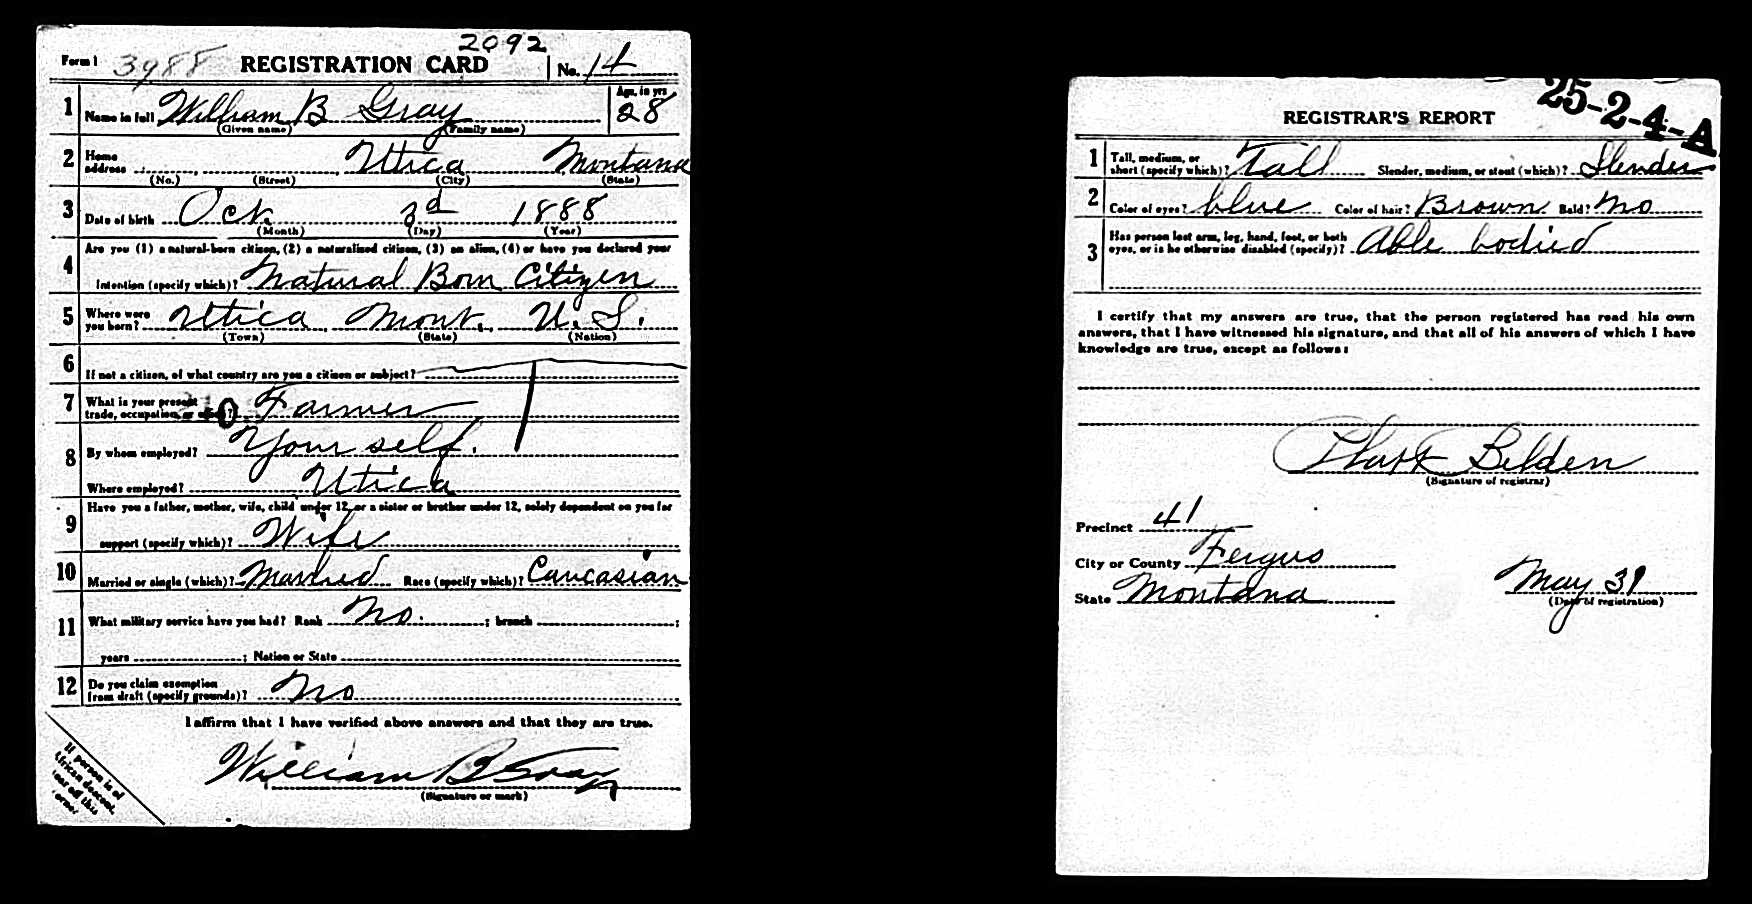 2092
Form 1 3988 REGISTRATION CARD No. 14
1 Name in full William B Gray Age, in yrs 28
(Given name) (Family name)
2 Home address Utica Montana
(No.) (Street) (City) (State)
3 Date of birth Oct. 3d 1888
(Month) (Day) (Year)
Are you (1) a natural-born citizen, (2) a naturalized citizen, (3) an alien, (4) or have you declared your
4 intention (specify which)? Natural Born Citizen
5 Where were you born? Utica Mont. U. S.
(Town) (State) (Nation)
6 If not a citizen, of what country are you a citizen or subject?
7 What is your present trade, occupation, or office? Farmer
8 By whom employed? Your self.
Where employed? Utica
9 Have you a father, mother, wife, child under 12, or a sister or brother under 12, solely dependent on you for
support (specify which)? Wife
10 Married or single (which)? Married Race (specify which)? Caucasian
11 What military service have you had? Rank No. ; branch ;
years ; Nation or State
12 Do you claim exemption from draft (specify grounds)? No
I affirm that I have verified above answers and that they are true.
William B Gray
(Signature or mark)
If person is of
African descent,
tear off this
corner
25-2-4-A
REGISTRAR'S REPORT
1 Tall, medium, or short (specify which)? Tall Slender, medium, or stout (which)? Slender
2 Color of eyes? blue Color of hair? Brown Bald? No
3 Has person lost arm, leg, hand, foot, or both
eyes, or is he otherwise disabled (specify)? Able bodied
I certify that my answers are true, that the person registered has read his own
answers, that I have witnessed his signature, and that all of his answers of which I have
knowledge are true, except as follows:
Belden
(Signature of registrar)
Precinct 41
City or County Fergus
State Montana May 31
(Date of registration)